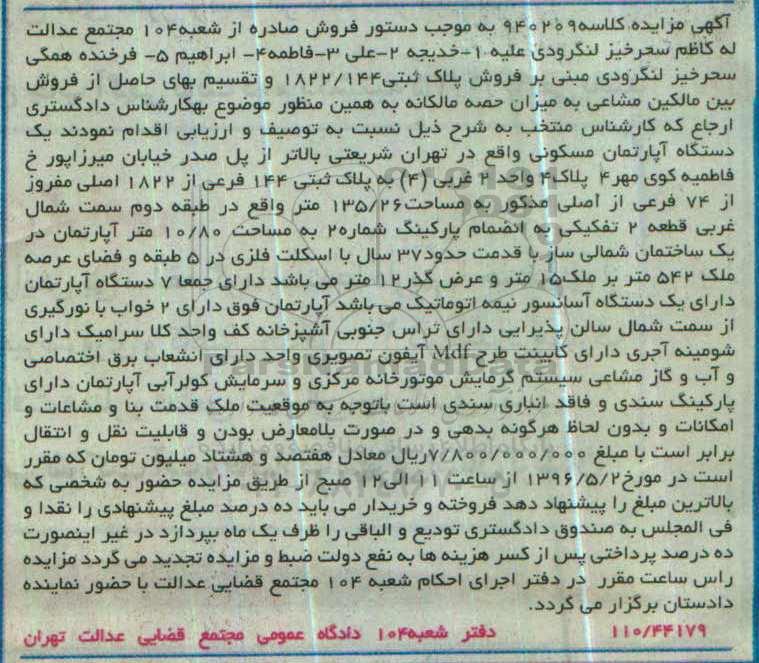 آگهی مزایده کلاسه۹۴۰۲۰۹ به موجب دستور فروش صادره از شعبه۱۰۴ مجتمع عدالت
له کاظم سحرخیز لنگرودی علیه ۱-خدیجه ۲-علی ۳-فاطمه۴- ابراهیم ۵- فرخنده همگی
سحرخیز لنگرودی مبنی بر فروش پلاک ثبتی۱۸۲۲/۱۴۴ و تقسیم بهای حاصل از فروش
بین مالکین مشاعی به میزان حصه مالکانه به همین منظور موضوع بهکارشناس دادگستری
ارجاع که کارشناس منتخب به شرح ذیل نسبت به توصیف و ارزیابی اقدام نمودند یک
دستگاه آپارتمان مسکونی واقع در تهران شریعتی بالاتر از پل صدر خیابان میرزاپور خ
فاطمیه کوی مهر۴ پلاک۴ واحد ۲ غربی (۴) به پلاک ثبتی ۱۴۴ فرعی از ۱۸۲۲ اصلی مفروز
از ۷۴ فرعی از اصلی مذکور به مساحت۱۳۵/۲۶ متر واقع در طبقه دوم سمت شمال
غربی قطعه ۲ تفکیکی به انضمام پارکینگ شماره۲ به مساحت ۱۰/۸۰ متر آپارتمان در
یک ساختمان شمالی ساز با قدمت حدود۳۷ سال با اسکلت فلزی در ۵ طبقه و فضای عرصه
ملک ۵۴۲ متر بر ملک۱۵ متر و عرض گذر۱۲ متر می باشد دارای جمعا ۷ دستگاه آپارتمان
دارای یک دستگاه آسانسور نیمه اتوماتیک می باشد آپارتمان فوق دارای ۲ خواب با نورگیری
از سمت شمال سالن پذیرایی دارای تراس جنوبی آشپزخانه کف واحد کلا سرامیک دارای
شومینه آجری دارای کابینت طرح Mdf آیفون تصویری واحد دارای انشعاب برق اختصاصی
و آب و گاز مشاعی سیستم گرمایش موتورخانه مرکزی و سرمایش کولرآبی آپارتمان دارای
پارکینگ سندی و فاقد انباری سندی است باتوجه به موقعیت ملک قدمت بنا و مشاعات و
امکانات و بدون لحاظ هرگونه بدهی و در صورت بلامعارض بودن و قابلیت نقل و انتقال
برابر است با مبلغ ۷/۸۰۰/۰۰۰/۰۰۰ریال معادل هفتصد و هشتاد میلیون تومان که مقرر
است در مورخ۱۳۹۶/۵/۲ از ساعت ۱۱ الی۱۲ صبح از طریق مزایده حضور به شخصی که
بالاترین مبلغ را پیشنهاد دهد فروخته و خریدار می باید ده درصد مبلغ پیشنهادی را نقدا و
فی المجلس به صندوق دادگستری تودیع و الباقی را ظرف یک ماه بپردازد در غیر اینصورت
ده درصد پرداختی پس از کسر هزینه ها به نفع دولت ضبط و مزایده تجدید می گردد مزایده
راس ساعت مقرر در دفتر اجرای احکام شعبه ۱۰۴ مجتمع قضایی عدالت با حضور نماینده
دادستان برگزار می گردد.
۱۱۰/۴۴۱۷۹ دفتر شعبه۱۰۴ دادگاه عمومی مجتمع قضایی عدالت تهران
ParsNamadData